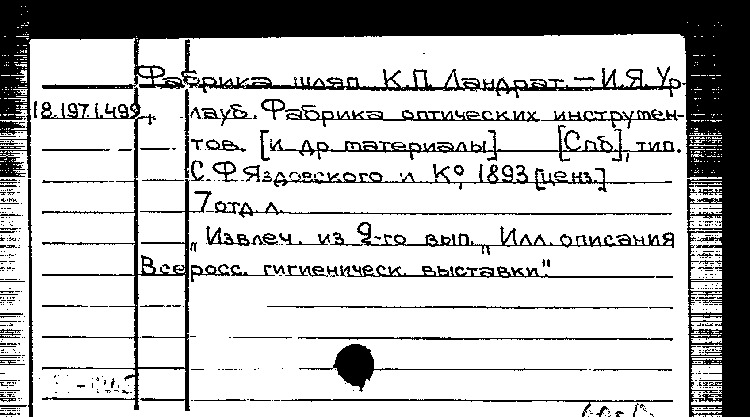 Фабрика шляп К.П. Ландрат. — И.Я. Ур-
18.197.1.499 лауб. Фабрика оптических инструмен-
тов. [и др материалы] [Спб], тип.
С.Ф Яздовского и Кº, 1893 [ценз.]
7 отд л.
„Извлеч. из 9-го вып. „Илл. описания
Всеросс. гигиеническ. выставки"